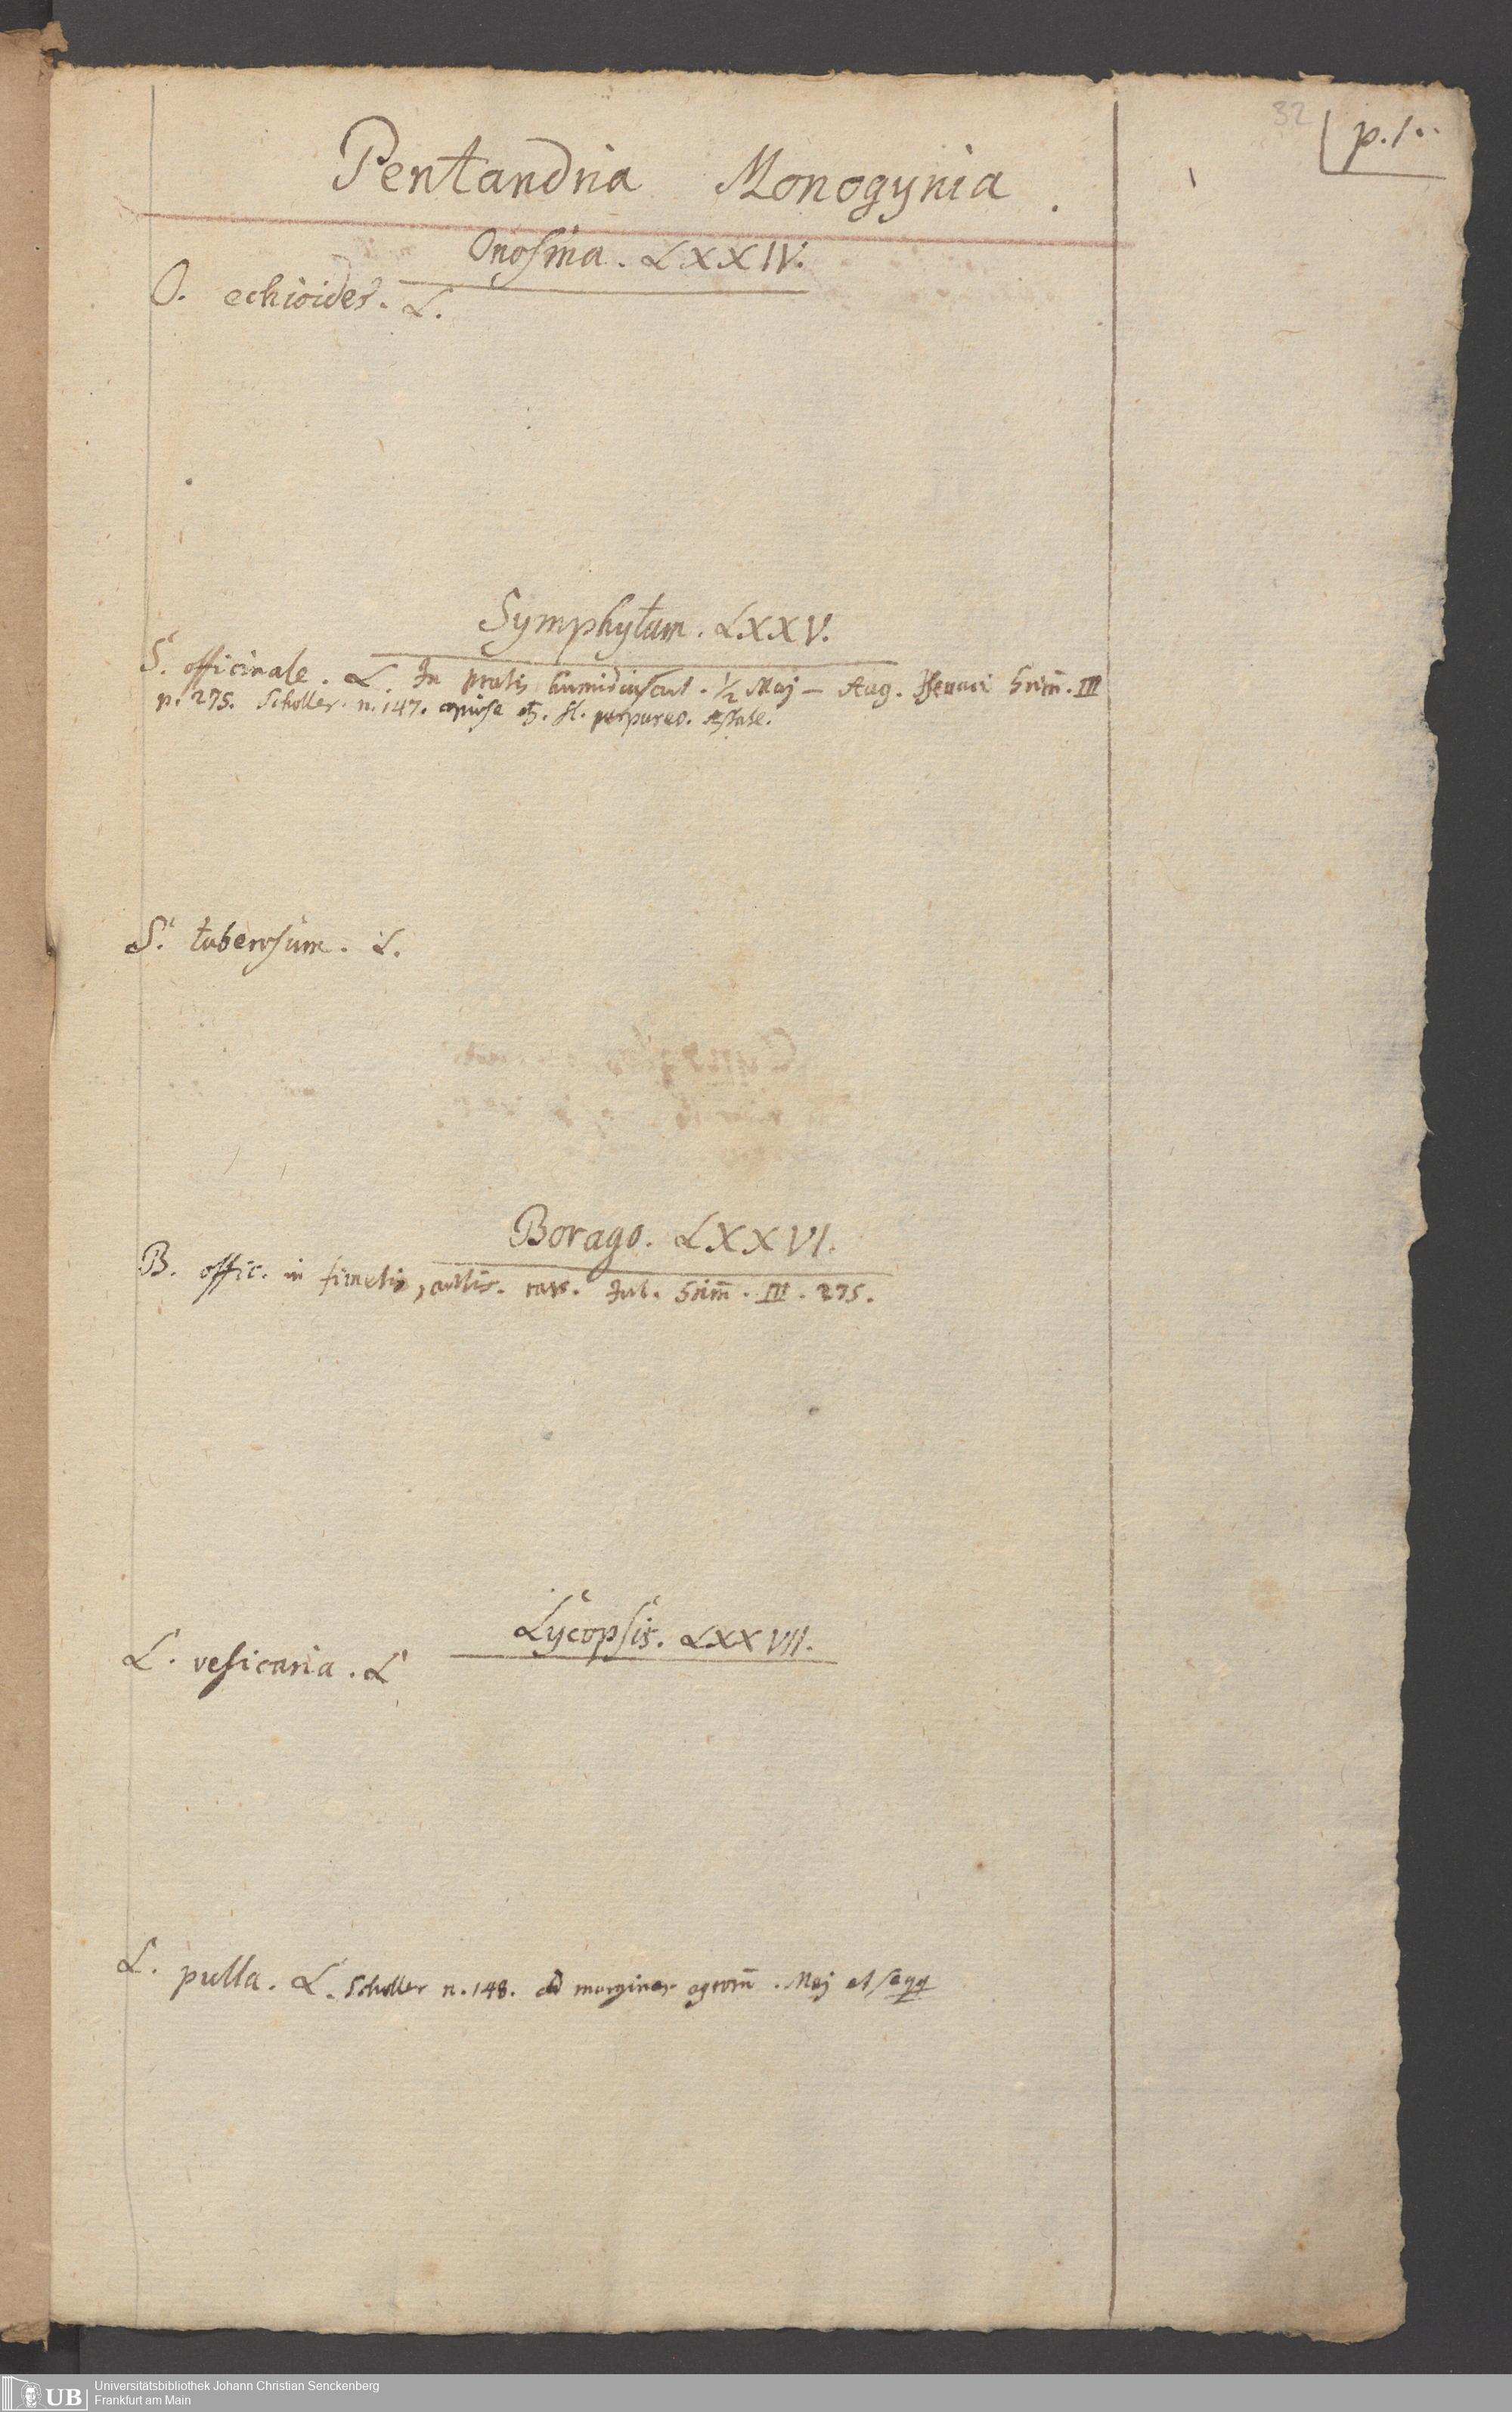 32
p. 1
Pentandria Monogynia.
Onosma. LXXIV.
O. echioides. L.
Symphytum. LXXV.
S. officinale. L. In pratis humidiuscul. ½ Maj – Aug. III
p. 275. Scholler. n. 147. copiose fl. purpureo. æstate.
S. tuberosum. L.
Borago. LXXVI.
B. offic. in fimetis, cultis. rar. Jul. III. 275.
Lycopsis. LXXVII.
L. vesicaria. L
L. pulla. L. Scholler n. 148. ad margines agrorū. Maj et seqq
UB Universitätsbibliothek Johann Christian Senckenberg
Frankfurt am Main